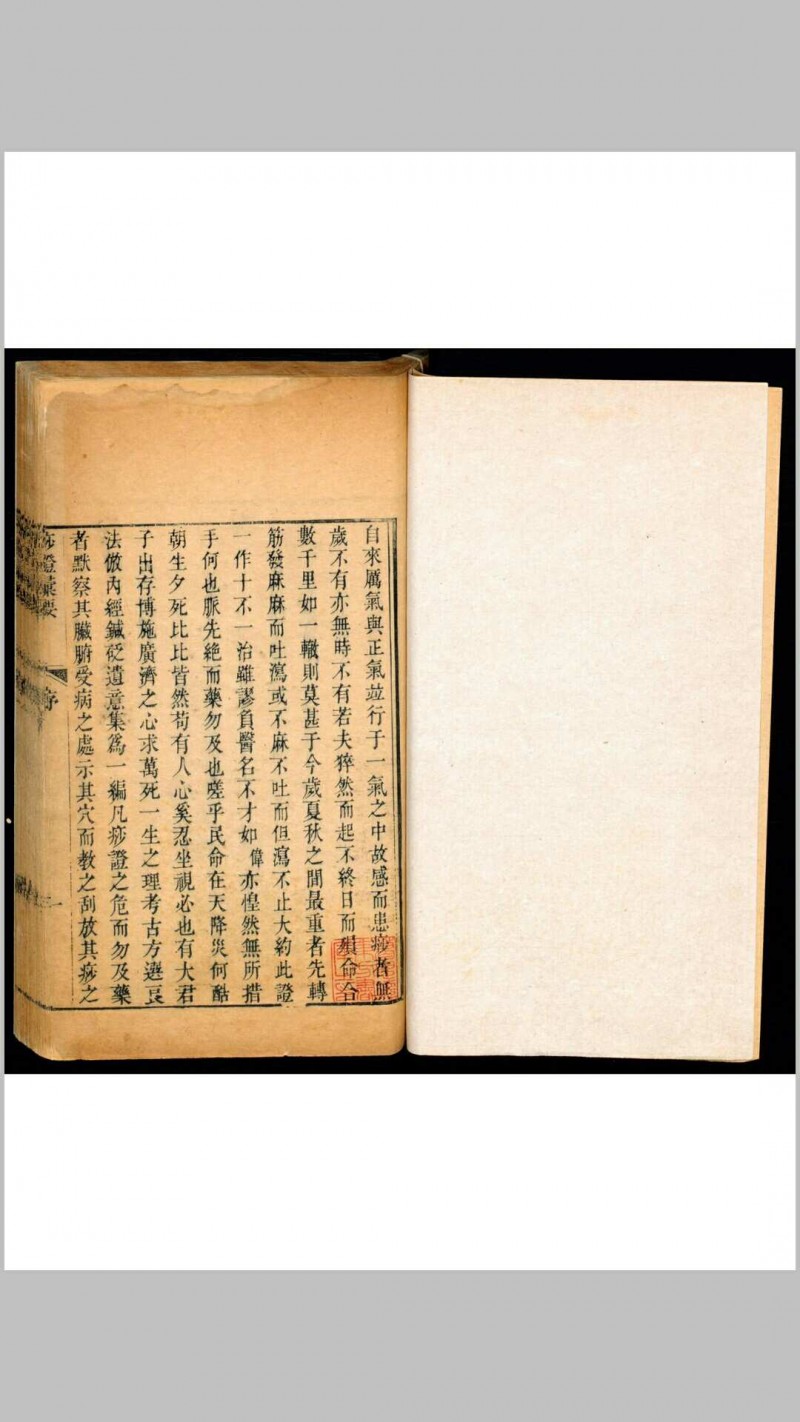 自來厲氣與正氣並行于一氣之中故感而患痧者無
歲不有亦無時不有若夫猝然而起不終日而殞命合
數千里如一轍則莫甚于今歲夏秋之間最重者先轉
筋發麻麻而吐瀉或不麻不吐而但瀉不止大約此證
一作十不一治雖謬負醫名不才如偉亦惶然無所措
手何也脈先絶而藥勿及也嗟乎民命在天降災何酷
朝生夕死比比皆然苟有人心奚忍坐視必也有大君
子出存博施廣濟之心求萬死一生之理考古方選良
法倣內經鍼砭遺意集爲一編凡痧證之危而勿及藥
者默察其臟腑受病之處示其穴而教之刮放其痧之
痧證彙要
序
一